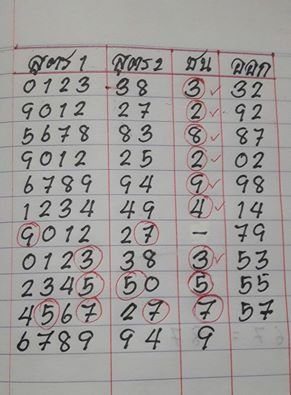 สูตร 1 สูตร 2 ชน ออก
0123 38 3 ✓ 32
9012 27 2 ✓ 92
5678 83 8 ✓ 87
9012 25 2 ✓ 02
6789 94 9 ✓ 98
1234 49 4 ✓ 14
9012 27 - 79
0123 38 3 ✓ 53
2345 50 5 55
4567 27 7 57
6789 94 9